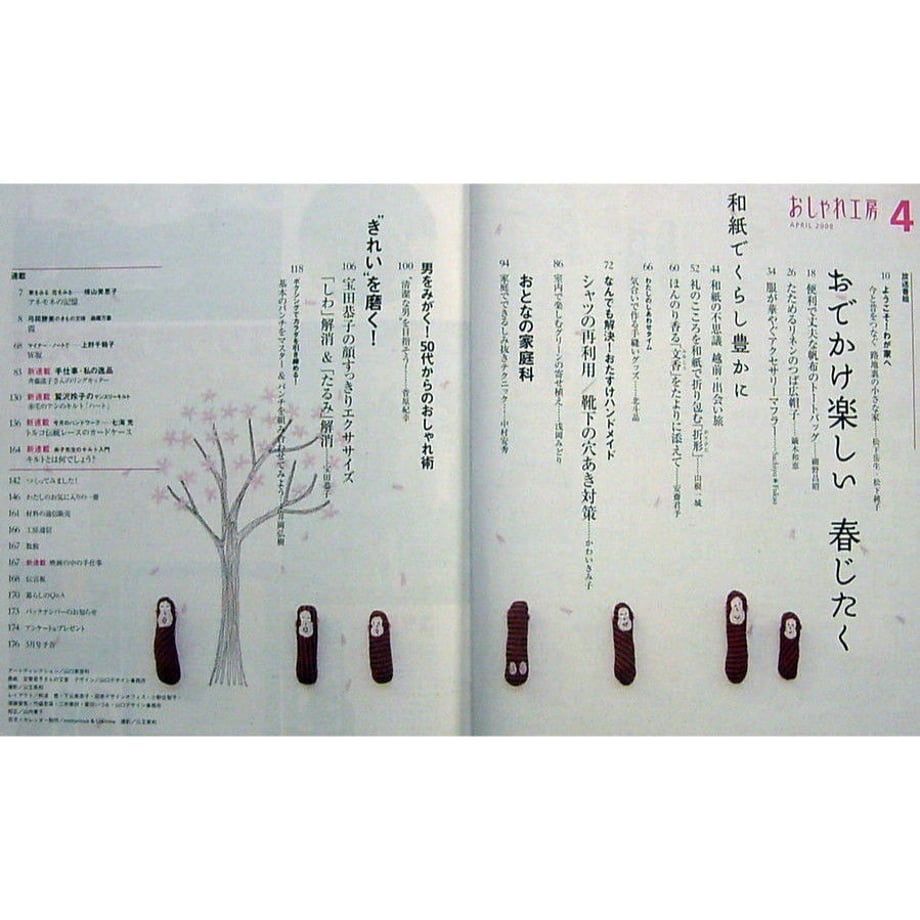 おしゃれ工房 4
APRIL 2008
放送番組
10 ようこそ!わが家へ
今と昔をつなぐ 路地裏の小さな家……松下岳生・松下純子
おでかけ楽しい 春じたく
18 便利で丈夫な帆布のトートバッグ……細野昌昭
26 たためるリネンのつば広帽子……鏑木和恵
34 服が華やぐアクセサリーマフラー
和紙でくらし豊かに
44 和紙の不思議 越前・出会い旅
52 礼のこころを和紙で折り包む「折形」……山根一城
60 ほんのり香る「文香」をたよりに添えて……安齋君予
わたしのしあわせタイム
66 気合いで作る手縫いグッズ……北斗晶
なんでも解決!おたすけハンドメイド
72 シャツの再利用/靴下の穴あき対策……かわいきみ子
86 室内で楽しむグリーンの寄せ植え……浅岡みどり
おとなの家庭科
94 家庭でできるしみ抜きテクニック……中村安秀
男をみがく!50代からのおしゃれ術
100 “清潔な男”を目指そう!……菅原紀幸
“きれい”を磨く!
106 宝田恭子の顔すっきりエクササイズ
「しわ」解消 & 「たるみ」解消……宝田恭子
ボクシングでカラダを引き締める!
118 基本のパンチをマスター & パンチを組み合わせてみよう
連載
7 横山美恵子
アネモネの記憶
8 弓岡勝美のきもの文様
霞
68 マイナー・ノートで……上野千鶴子
冥版
83 新連載 手仕事・私の逸品
斉藤謠子さんのリングカッター
130 新連載 鷲沢玲子のマンスリーキルト
赤毛のアンのキルト「ハート」
136 新連載 今月のハンドワーク……七海 光
トルコ伝統レースのカードケース
164 新連載 キルト入門
キルトとは何でしょう?
142 つくってみました!
146 わたしのお気に入りの一冊
161 材料の通信販売
166 工房通信
167 歌服
167 新連載 映画の中の手仕事
168 伝言板
170 暮らしのQ&A
173 バックナンバーのお知らせ
174 アンケート&プレゼント
176 5月号予告
アートディレクション/山口美登利